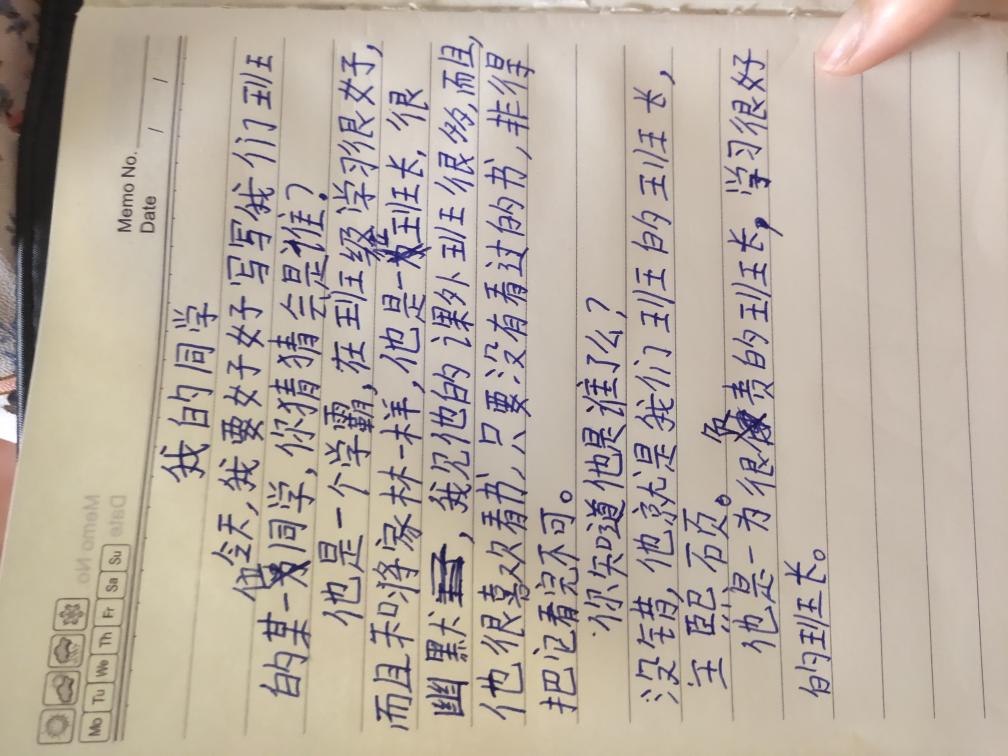 Memo No.
Date / /
Mo Tu We Th Fr Sa Su
我的同学
今天,我要好好写写我们班
的某一位同学,你猜猜会是谁?
他是一个学霸,在班级学习很好,
而且和蒋家林一样,他是一位班长,很
幽默,我见他的课外班很多,而且,
他很喜欢看书,只要没有看过的书,非得
把它看完不可。
你知道他是谁了么?
没错,他就是我们班的班长,
王熙页。
他是一为很负责的班长,学习很好
的班长。